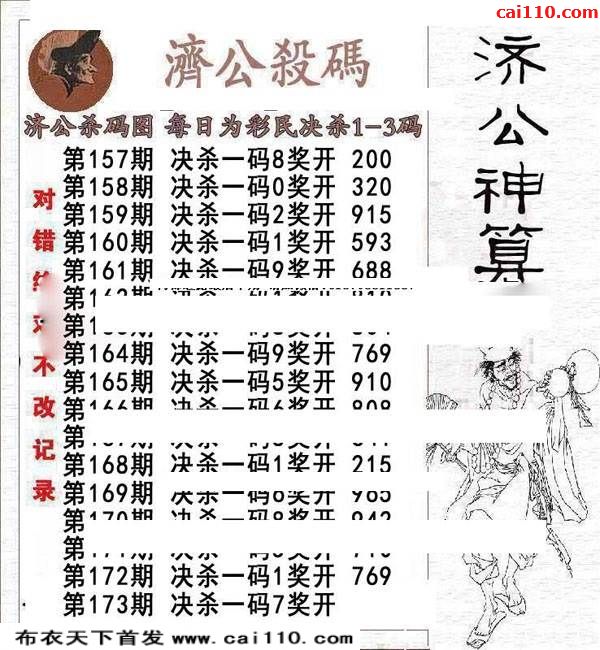 cai110.com
濟公殺碼
济公神算
济公杀码图 每日为彩民决杀1-3码
对错绝对不改记录
第157期 决杀一码8奖开 200
第158期 决杀一码0奖开 320
第159期 决杀一码2奖开 915
第160期 决杀一码1奖开 593
第161期 决杀一码9奖开 688
第164期 决杀一码9奖开 769
第165期 决杀一码5奖开 910
第166期 决杀一码6奖开 808
第168期 决杀一码1奖开 215
第169期 决杀一码 奖开 985
第170期 决杀一码8奖开 942
第172期 决杀一码1奖开 769
第173期 决杀一码7奖开
布衣天下首发 www.cai110.com